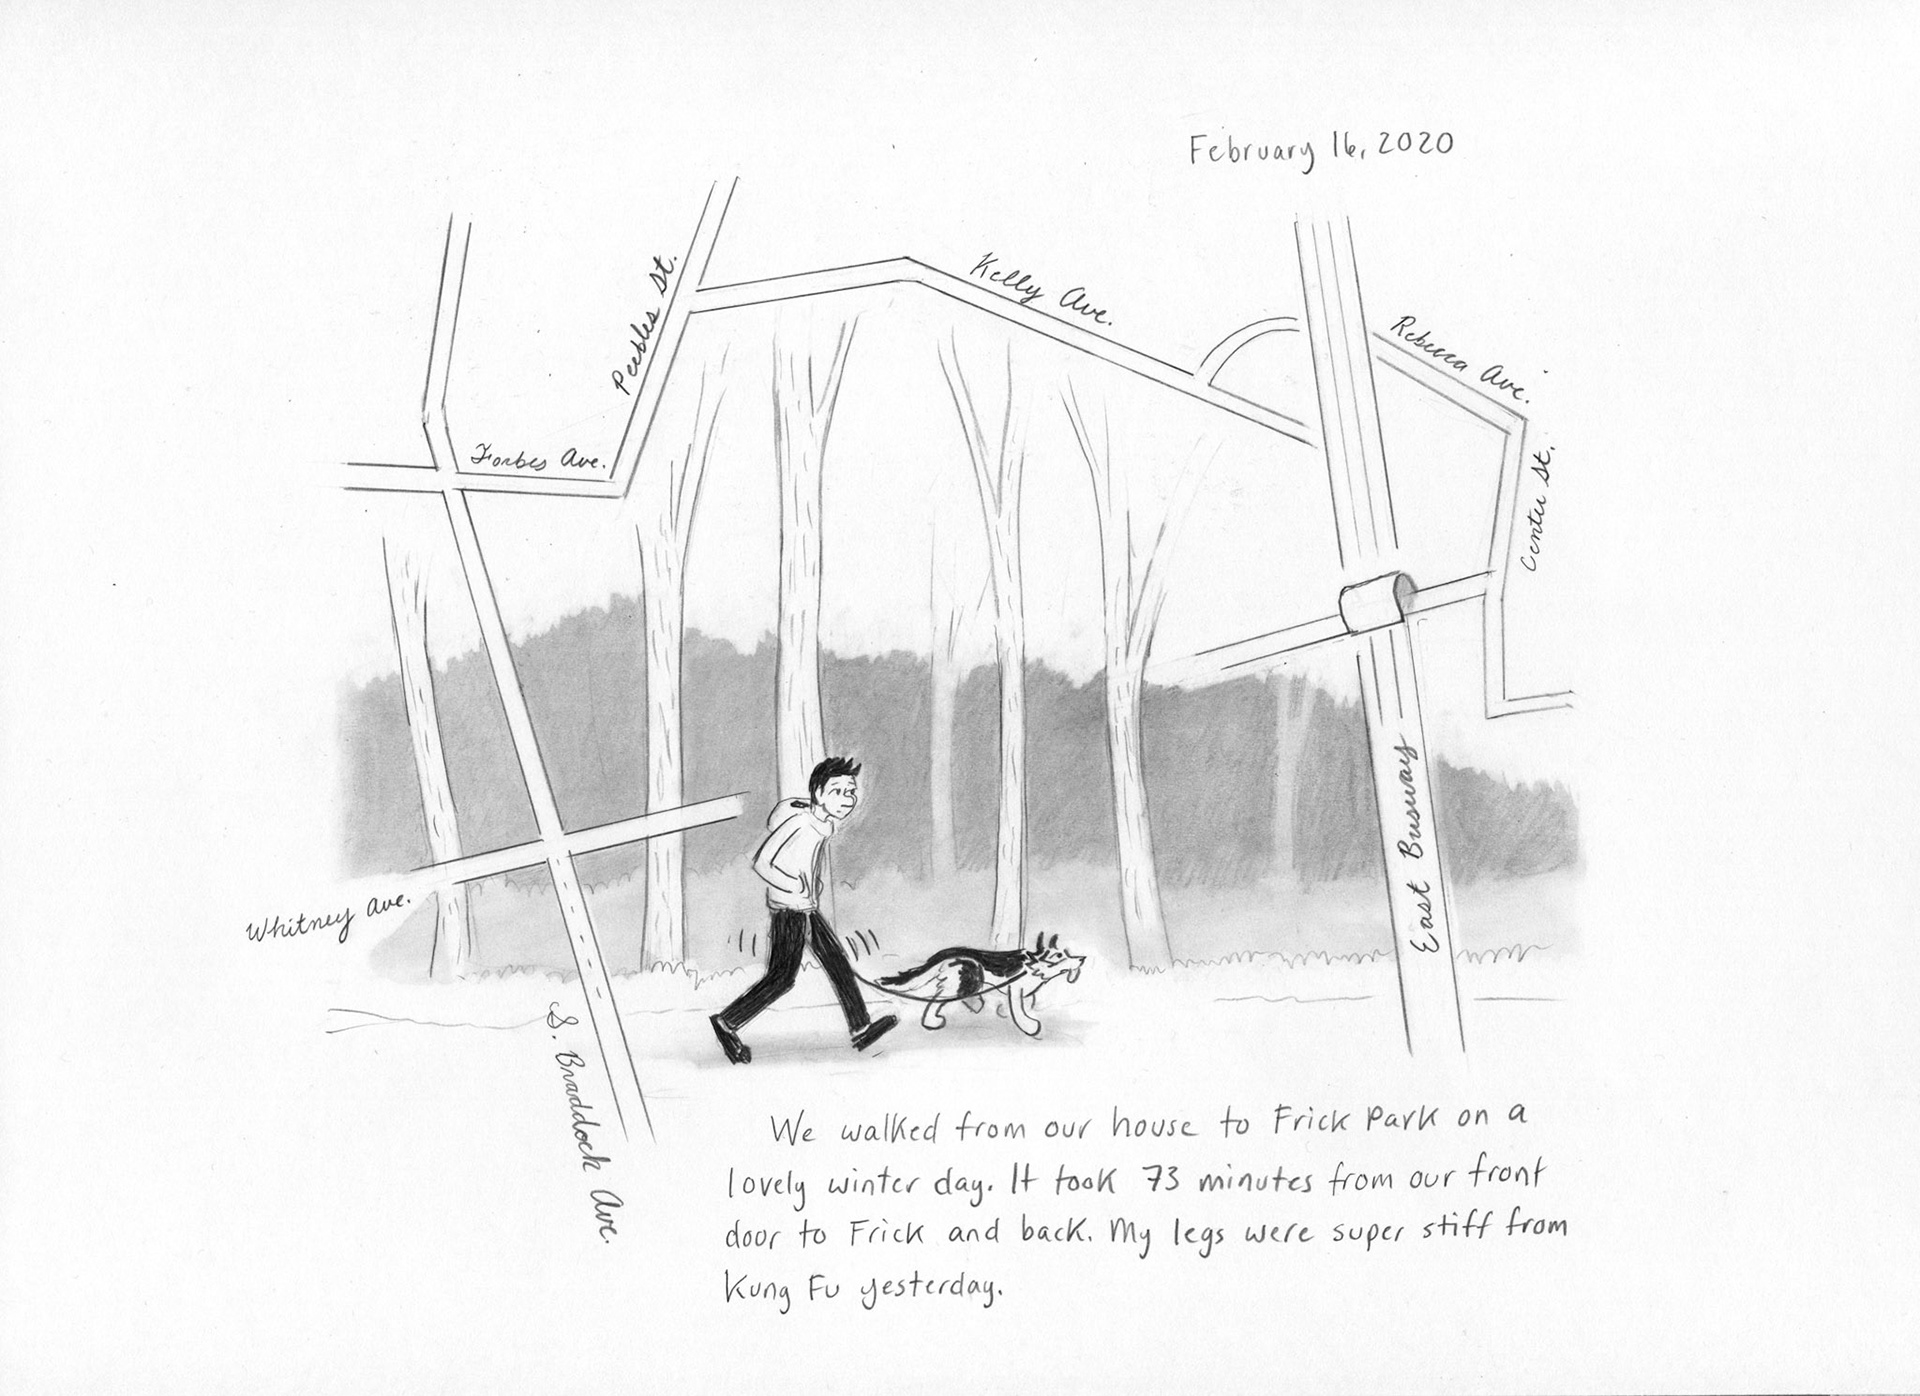 February 16, 2020
Kelly Ave.
Peebles St.
Rebecca Ave.
Forbes Ave.
Center St.
East Busway
Whitney Ave.
S. Braddock Ave.
We walked from our house to Frick Park on a
lovely winter day. It took 73 minutes from our front
door to Frick and back. My legs were super stiff from
Kung Fu yesterday.